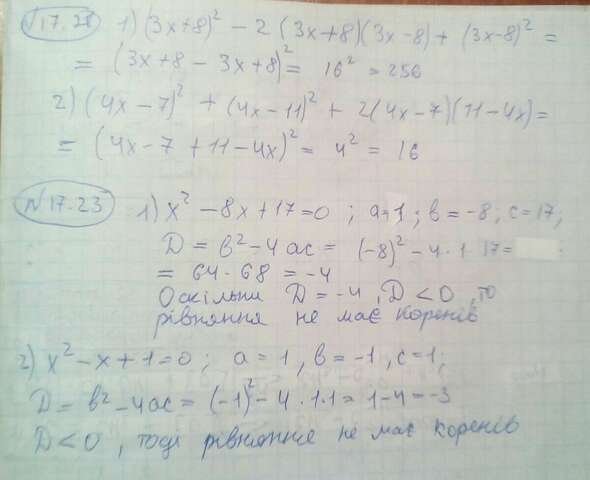 №17.21 1) (3x+8)² - 2(3x+8)(3x-8) + (3x-8)² =
= (3x+8 - 3x+8)² = 16² = 256
2) (4x-7)² + (4x-11)² + 2(4x-7)(11-4x) =
= (4x-7+11-4x)² = 4² = 16
№17.23 1) x² - 8x + 17 = 0 ; a=1 ; в = -8 ; с = 17;
D = в² - 4ас = (-8)² - 4·1·17 =
= 64 - 68 = -4
Оскільки D = -4 , D < 0 , то
рівняння не має коренів
2) x² - x + 1 = 0 ; a = 1 , в = -1 , с = 1;
D = в² - 4ас = (-1)² - 4·1·1 = 1-4 = -3
D < 0 , тоді рівняння не має коренів